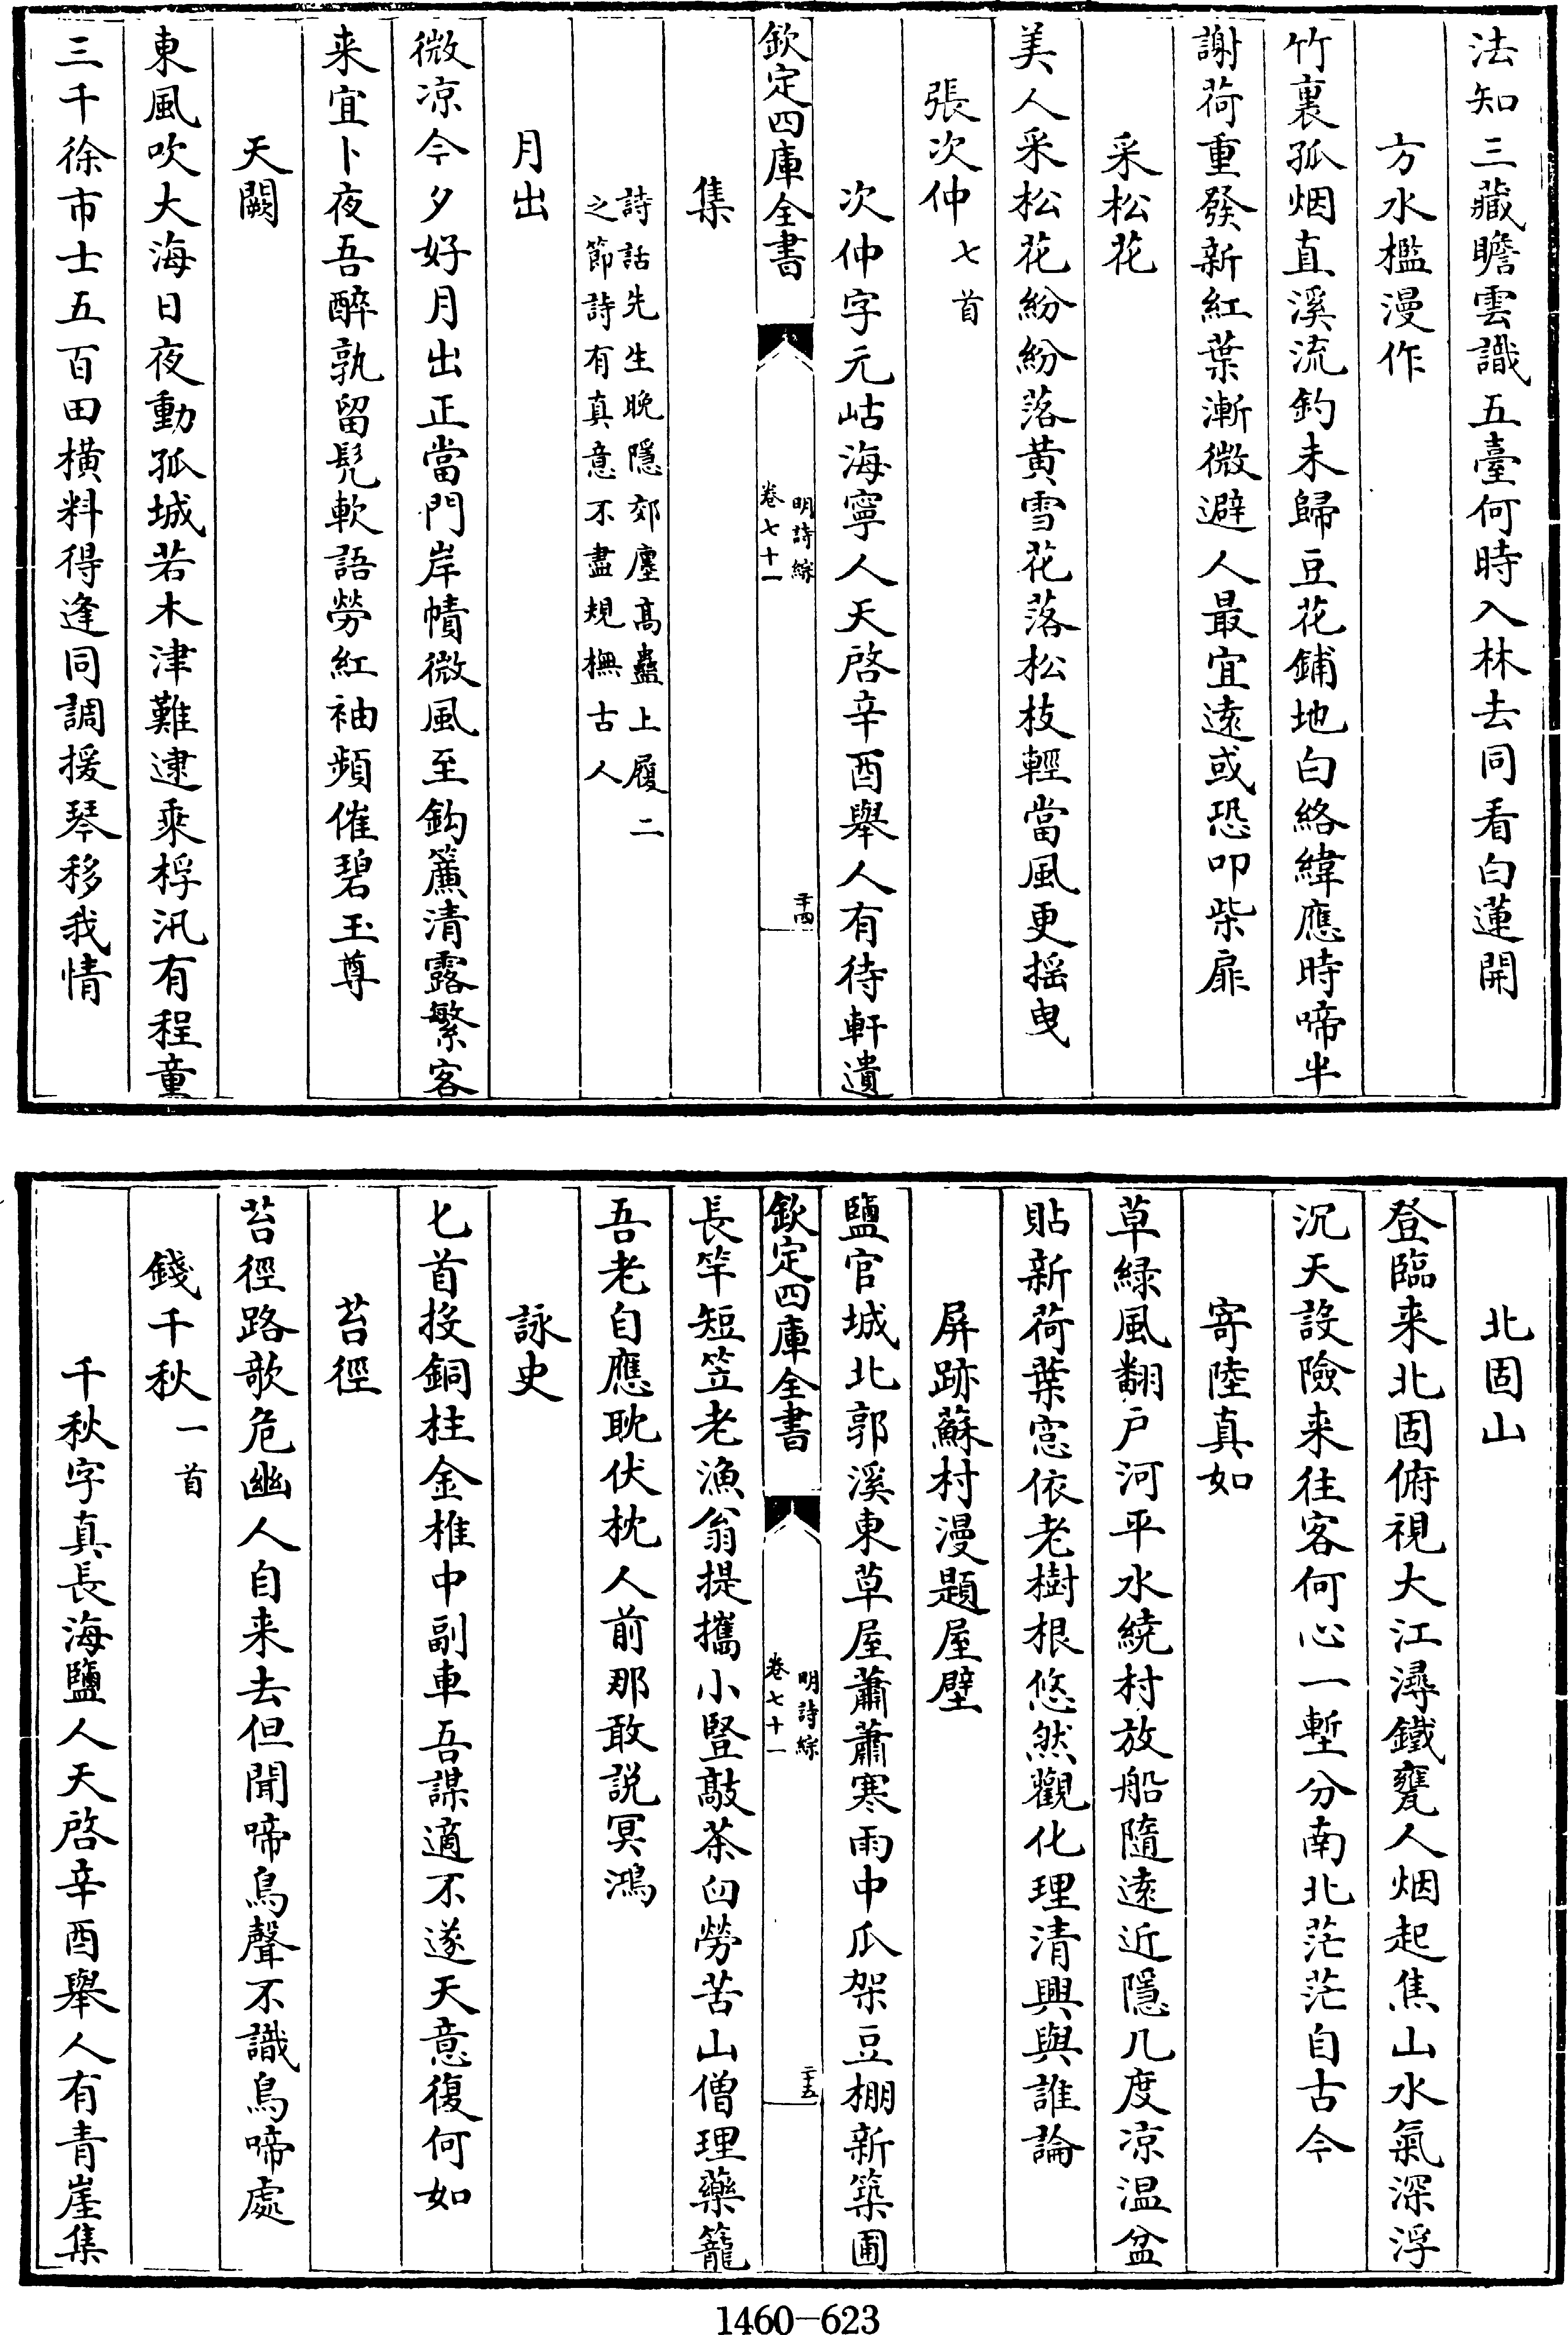 法知三藏瞻雲識五臺何時入林去同看白蓮開
方水檻漫作
竹裏孤烟直溪流釣未歸豆花鋪地白絡緯應時啼半
謝荷重發新紅葉漸微避人最宜遠或恐叩柴扉
采松花
美人采松花紛紛落黄雪花落松枝輕當風更摇曳
張次仲七首
次仲字元岵海寧人天啓辛酉舉人有待軒遺
欽定四庫全書
明詩綜
卷七十一
二十四
集
詩話先生晚隱郊廛高蠱上履二
之節詩有真意不盡規橅古人
月出
微凉今夕好月出正當門岸幘微風至鈎簾清露繁客
来宜卜夜吾醉孰留髠軟語勞紅袖頻催碧玉尊
天闕
東風吹大海日夜動孤城若木津難逮乘桴汛有程童
三千徐市士五百田横料得逢同調援琴移我情
北固山
登臨来北固俯視大江潯鐵甕人烟起焦山水氣深浮
沉天設險来往客何心一塹分南北茫茫自古今
寄陸真如
草緑風翻户河平水繞村放船隨遠近隱几度凉温盆
貼新荷葉窓依老樹根悠然觀化理清興與誰論
屏跡蘇村漫題屋壁
鹽官城北郭溪東草屋蕭蕭寒雨中瓜架豆棚新築圃
欽定四庫全書
明詩綜
卷七十一
二十五
長竿短笠老漁翁提攜小豎敲茶臼勞苦山僧理藥籠
吾老自應耽伏枕人前那敢説冥鴻
詠史
匕首投銅柱金椎中副車吾謀適不遂天意復何如
苔徑
苔徑路欹危幽人自来去但聞啼鳥聲不識鳥啼處
錢千秋一首
千秋字真長海鹽人天啓辛酉舉人有青崖集
1460-623